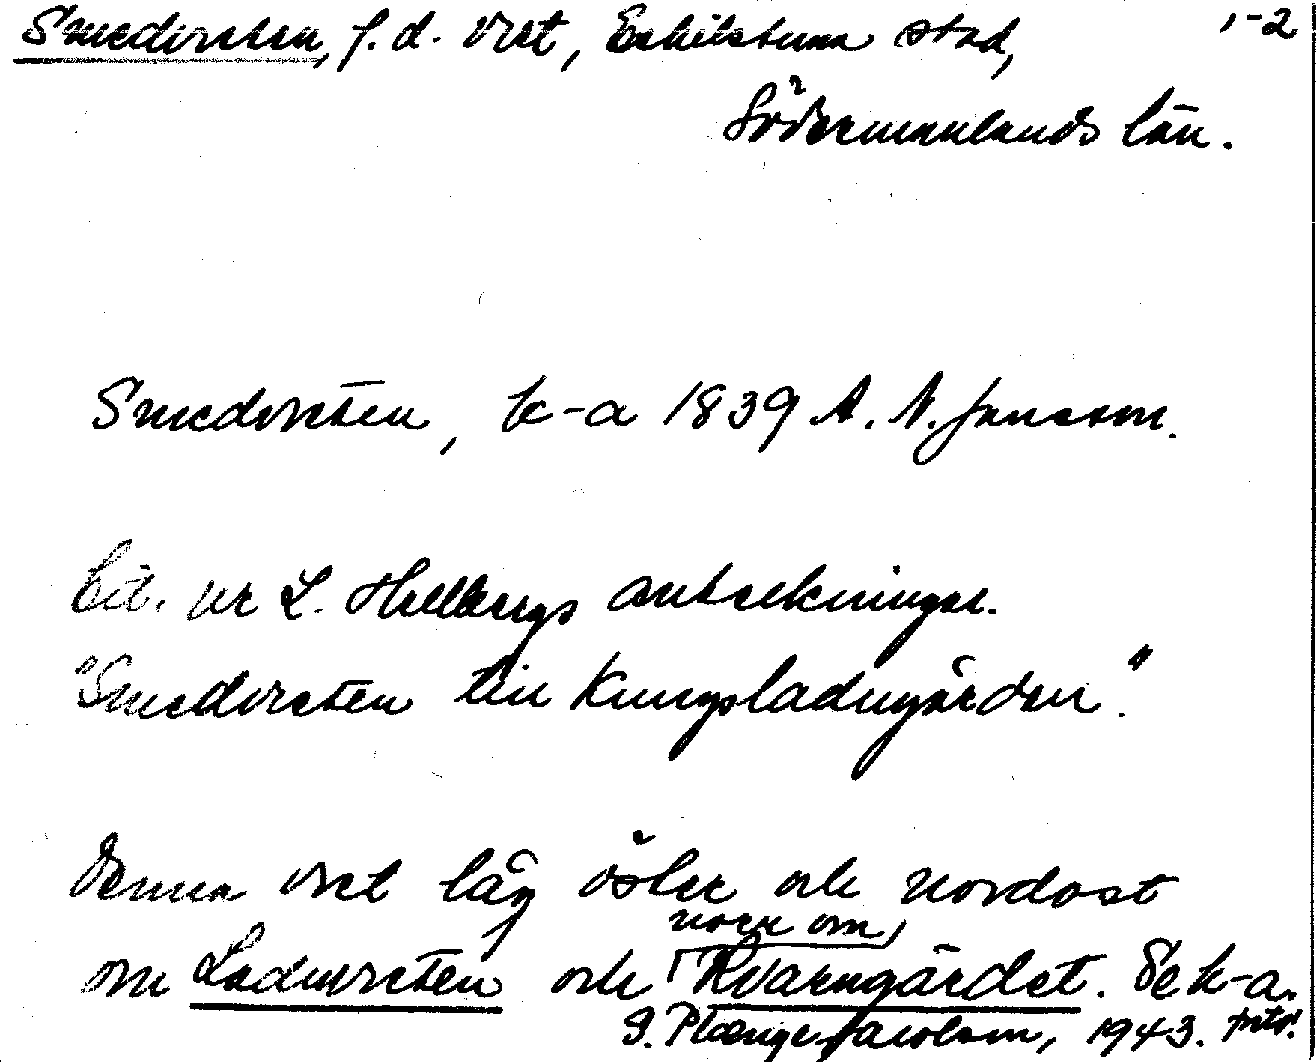 Smedvreten, f.d. vret, Eskilstuna stad, 1-2
Södermanlands län.
Smedvreten, k-a 1839 A. N. Jansson.
Cit. ur L. Hellbergs anteckningar.
"Smedvreten till Kungsladugården".
Denna vret låg öster och nordost
norr om
om Laduvreten och Kvarngärdet. Se k-a.
G. Plænge Jacobson, 1943.